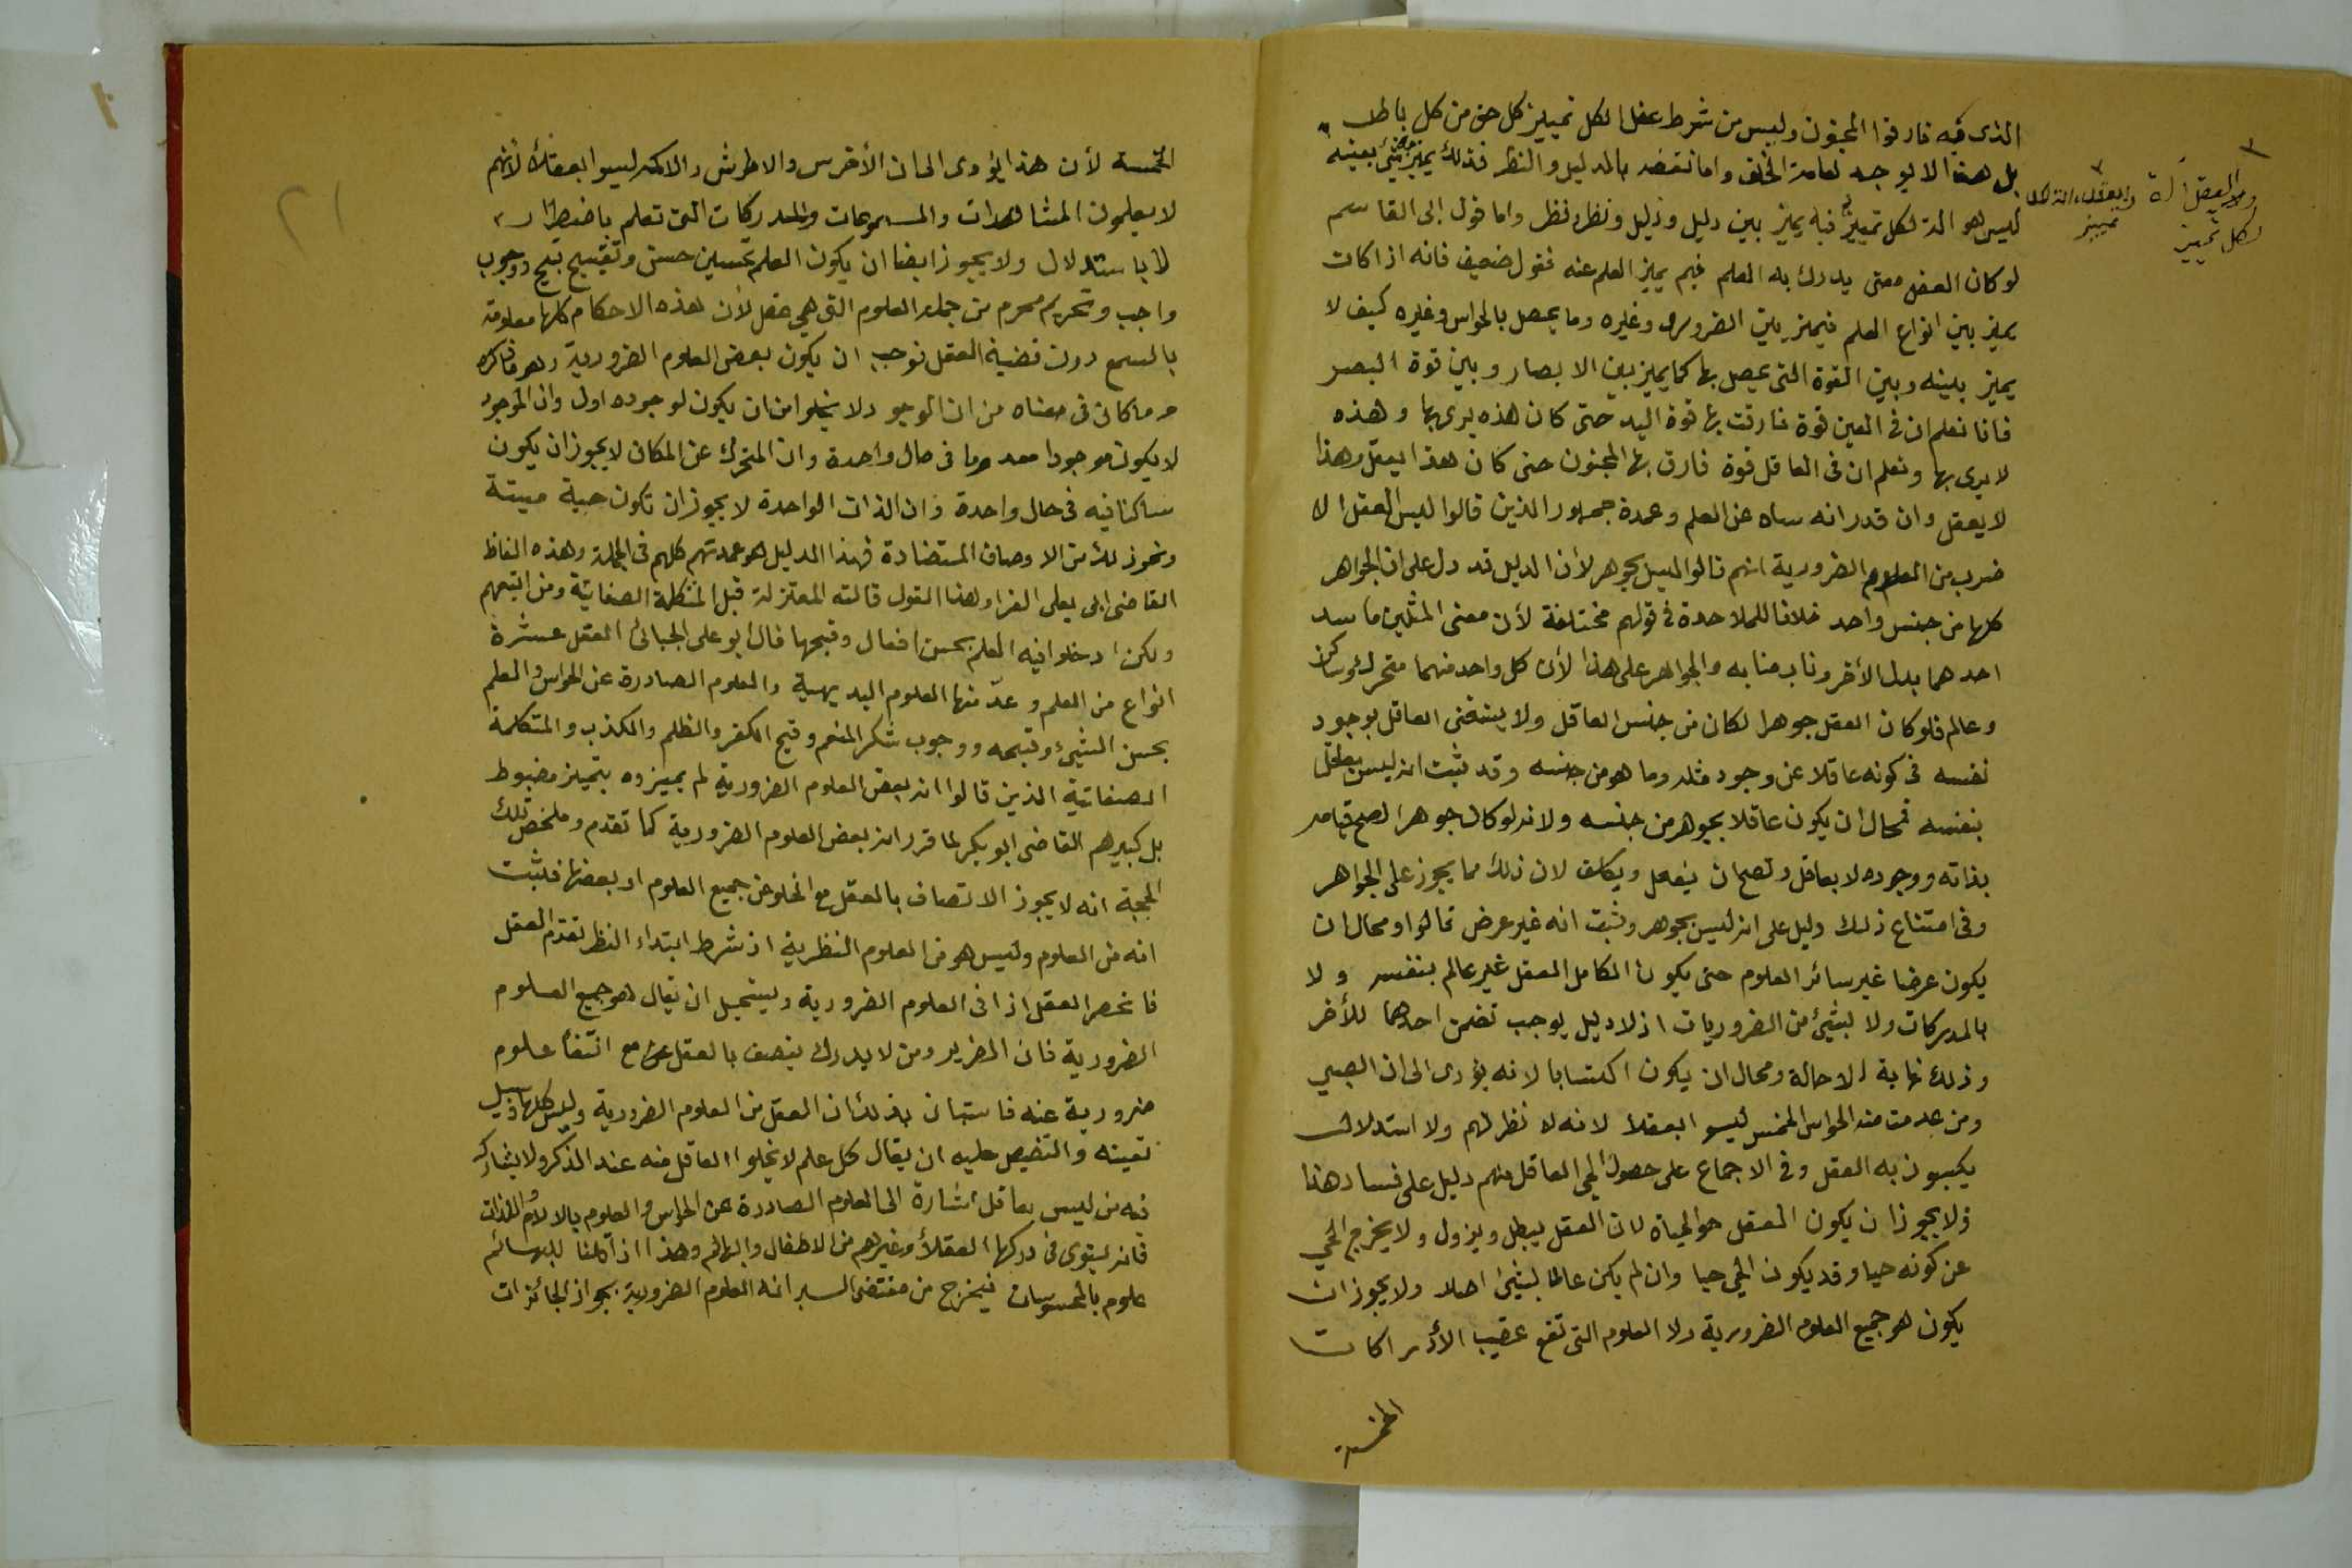 الذى به فارقوا المجنون وليس من شرط عقل الكل تمييز كل حق من كل باطل
بل هذا لا يوجد لعامة الخلق واما نقضه بالدليل والنظر فذلك يميز بعض شئ بعينه
ليس هو آلة لكل تمييز فبه يميز بين دليل ودليل ونظر ونظر واما قول ابى القاسم
لو كان العقل معنى يدرك به العلم فبم يميز العلم عنه فقول ضعيف فانه اذا كان
يميز بين انواع العلم فيميز بين الضرورى وغيره وما يحصل بالحواس وغيره كيف لا
يميز بينه وبين القوة التى يحصل بها كما يميز بين الابصار وبين قوة البصر
فانا نعلم ان فى العين قوة فارقت بها قوة اليد حتى كان هذه يرى بها وهذه
لا يرى بها ونعلم ان فى العاقل قوة فارق بها المجنون حتى كان هذا يعقل وهذا
لا يعقل وان قدر انه ساه عن العلم وعمدة جمهور الذين قالوا ليس العقل الا
ضرب من العلوم الضرورية انهم قالوا ليس بجوهر لأن الدليل قد دل على ان الجواهر
كلها من جنس واحد خلافا للملاحدة فى قولهم مختلفة لأن معنى المثلين ما سد
احدهما بدل الأخر وناب منابه والجواهر على هذا لأن كل واحد منهما متحرك وساكن
وعالم فلو كان العقل جوهرا لكان من جنس العاقل ولا يستغنى العاقل بوجود
نفسه فى كونه عاقلا عن وجود مثله وما هو من جنسه وقد ثبت انه ليس بعاقل
بنفسه فمحال ان يكون عاقلا بجوهر من جنسه ولانه لو كان جوهرا لصح قيامه
بذاته ووجوده لا بعاقل ولصح ان يفعل ويكلف لان ذلك مما يجوز على الجواهر
وفى امتناع ذلك دليل على انه ليس بجوهر وثبت انه غير عرض قالوا ومحال ان
يكون عرضا غير سائر العلوم حتى يكون الكامل العقل غير عالم بنفسه ولا
بالمدركات ولا لشئ من الضروريات اذ لا دليل يوجب تضمن احدهما للأخر
وذلك نهاية الاحالة ومحال ان يكون اكتسابا لانه يؤدى الى ان الصبي
ومن عدمت منه الحواس الخمس ليسوا بعقلا لانه لا نظر لهم ولا استدلال
يكسبون به العقل وفى الاجماع على حصول الحى العاقل منهم دليل على فساد هذا
ولا يجوز ان يكون العقل هو الحياة لان العقل يبطل ويزول ولا يخرج الحي
عن كونه حيا وقد يكون الحي حيا وان لم يكن عالما لشئ اصلا ولا يجوز ان
يكون هو جميع العلوم الضرورية ولا العلوم التى تقع عقيب الأدراكات
الخمسة
والعقل آلة
لكل تمييز
تمييز
٢١
الخمسة لأن هذا يؤدى الى ان الأخرس والاطرش والاكمه ليسوا بعقلاء لأنهم
لا يعلمون المشاهدات والمسموعات والمدركات التى تعلم باضطرار
لا باستدلال ولا يجوز ايضا ان يكون العلم بتحسين حسن وتقبيح قبيح ووجوب
واجب وتحريم محرم من جملة العلوم التى هي عقل لأن هذه الاحكام كلها معلومة
بالسمع دون قضية العقل فوجب ان يكون بعض العلوم الضرورية وهو ما ذكره
وما كان فى معناه من ان الموجود لا يخلوا من ان يكون لوجوده اول وان الموجود
لا يكون موجودا معدوما فى حال واحدة وان المتحرك عن المكان لا يجوز ان يكون
ساكنا فيه فى حال واحدة وان الذات الواحدة لا يجوز ان تكون حية ميتة
ونحو ذلك من الاوصاف المتضادة فهذا الدليل هو عمدتهم كلهم فى الجملة وهذه الفاظ
القاضى ابى يعلى الفرا وهذا القول قالته المعتزلة قبل المتكلمة الصفاتية ومن اتبعهم
ولكن ادخلوا فيه العلم بحسن افعال وقبحها قال ابو على الجبائى العقل عشرة
انواع من العلم وعدّ منها العلوم البديهية والعلوم الصادرة عن الحواس والعلم
بحسن الشيئ وقبحه ووجوب شكر المنعم وقبح الكفر والظلم والكذب والمتكلمة
الصفاتية الذين قالوا انه بعض العلوم الضرورية لم يميزوه بتمييز مضبوط
بل كبيرهم القاضى ابو بكر لما قرر انه بعض العلوم الضرورية كما تقدم وملخص تلك
الحجة انه لا يجوز الاتصاف بالعقل مع الخلو عن جميع العلوم او بعضها فثبت
انه من العلوم وليس هو من العلوم النظرية اذ شرط ابتداء النظر تقدم العقل
فانحصر العقل اذا فى العلوم الضرورية ويستحيل ان يقال هو جميع العلوم
الضرورية فان الضرير ومن لا يدرك يتصف بالعقل مع انتفأ علوم
ضرورية عنه فاستبان بذلك ان العقل من العلوم الضرورية وليس كلها وسبيل
تعيينه والتنصيص عليه ان يقال كل علم لا يخلوا العاقل منه عند الذكر ولا يشاركه
فيه من ليس بعاقل اشارة الى العلوم الصادرة عن الحواس والعلوم بالالام واللذات
فانه يستوى فى دركها العقلأ وغيرهم من الاطفال والبهائم وهذا اذا قلنا للبهائم
علوم بالمحسوسات فيخرج من مقتضى السبر انه العلوم الضرورية بجواز الجائزات